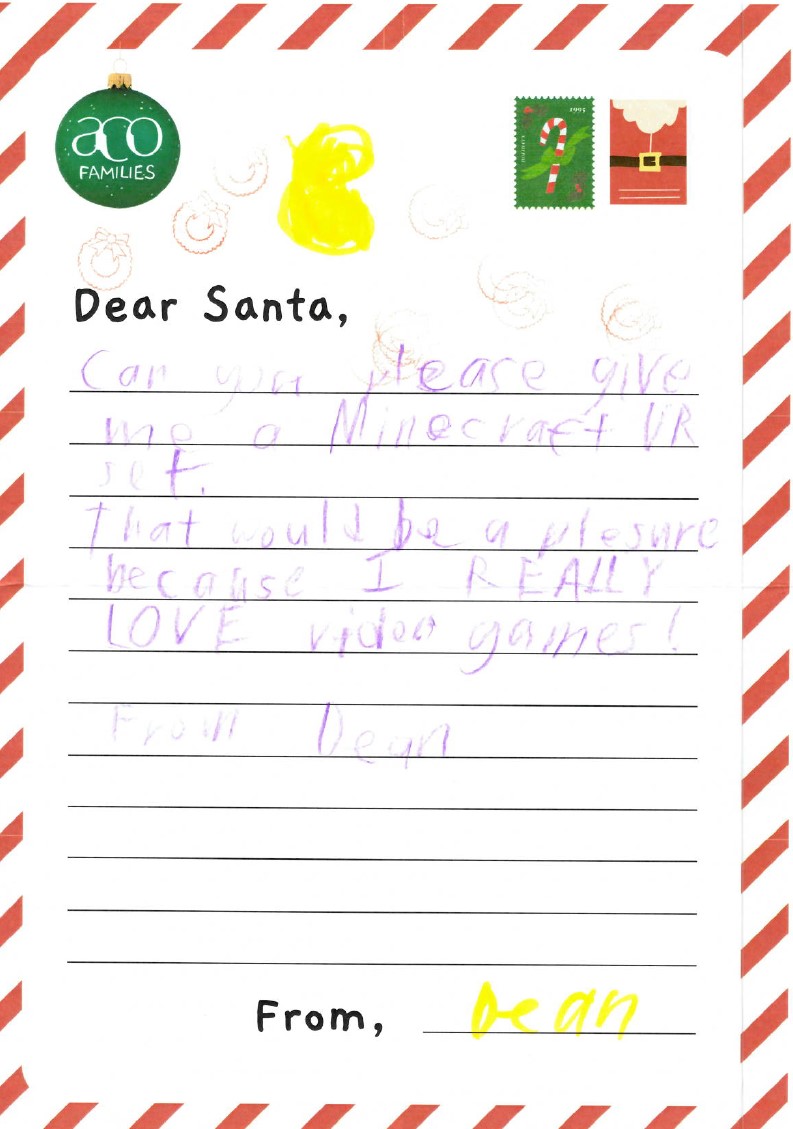 aco
FAMILIES
1995
Dear Santa,
Can you please give
me a Minecraft VR
set.
That would be a plesure
because I REALLY
LOVE video games!
From Dean
From, Dean